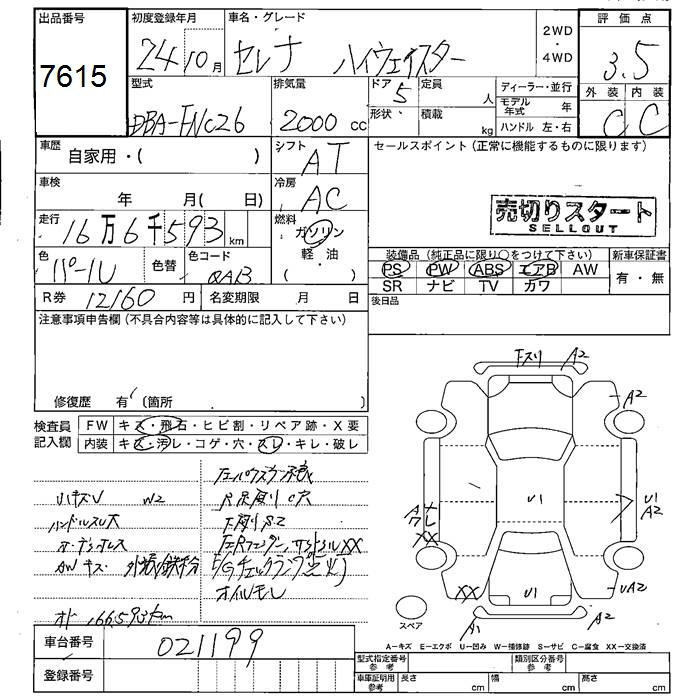 出品番号 7615
初度登録年月 24 10月
車名・グレード セレナ ハイウェイスター
2WD・4WD
評価点 3.5
型式 DBA-FNC26
排気量 2000 cc
ドア 5
形状
定員 人
積載 kg
ディーラー・並行
モデル年式 年
ハンドル 左・右
外装 内装
C C
車歴 自家用・( )
シフト AT
セールスポイント (正常に機能するものに限ります)
車検 年 月( 日)
冷房 AC
売切りスタート
SELLOUT
走行 16万6千593km
燃料 ガソリン 軽・油
色 パール
色替
色コード QAB
装備品 (純正品に限り○をつけて下さい)
新車保証書
PS PW ABS エアB AW
SR ナビ TV カワ
有・無
R券 12160円
名変期限 月 日
後日品
注意事項申告欄 (不具合内容等は具体的に記入して下さい)
修復歴 有 (箇所 )
検査員記入欄
FW キズ・飛石・ヒビ割・リペア跡・X要
内装 キズ・汚レ・コゲ・穴・スレ・キレ・破レ
W2
ハンドルスレ大
オーディオレス
AWキズ
E/Gチェックランプ点灯
オイルモレ
オド 166,593km
下スリ A2
A2
U1
A2
U1
XX
XX
UA2
U1
A1
A2
スペア
A-キズ E-エクボ U-凹み W-補修跡 S-サビ C-腐食 XX-交換済
車台番号 021199
登録番号
型式指定番号 参考
類別区分番号 参考
車庫証明用 参考
長さ cm
幅 cm
高さ cm